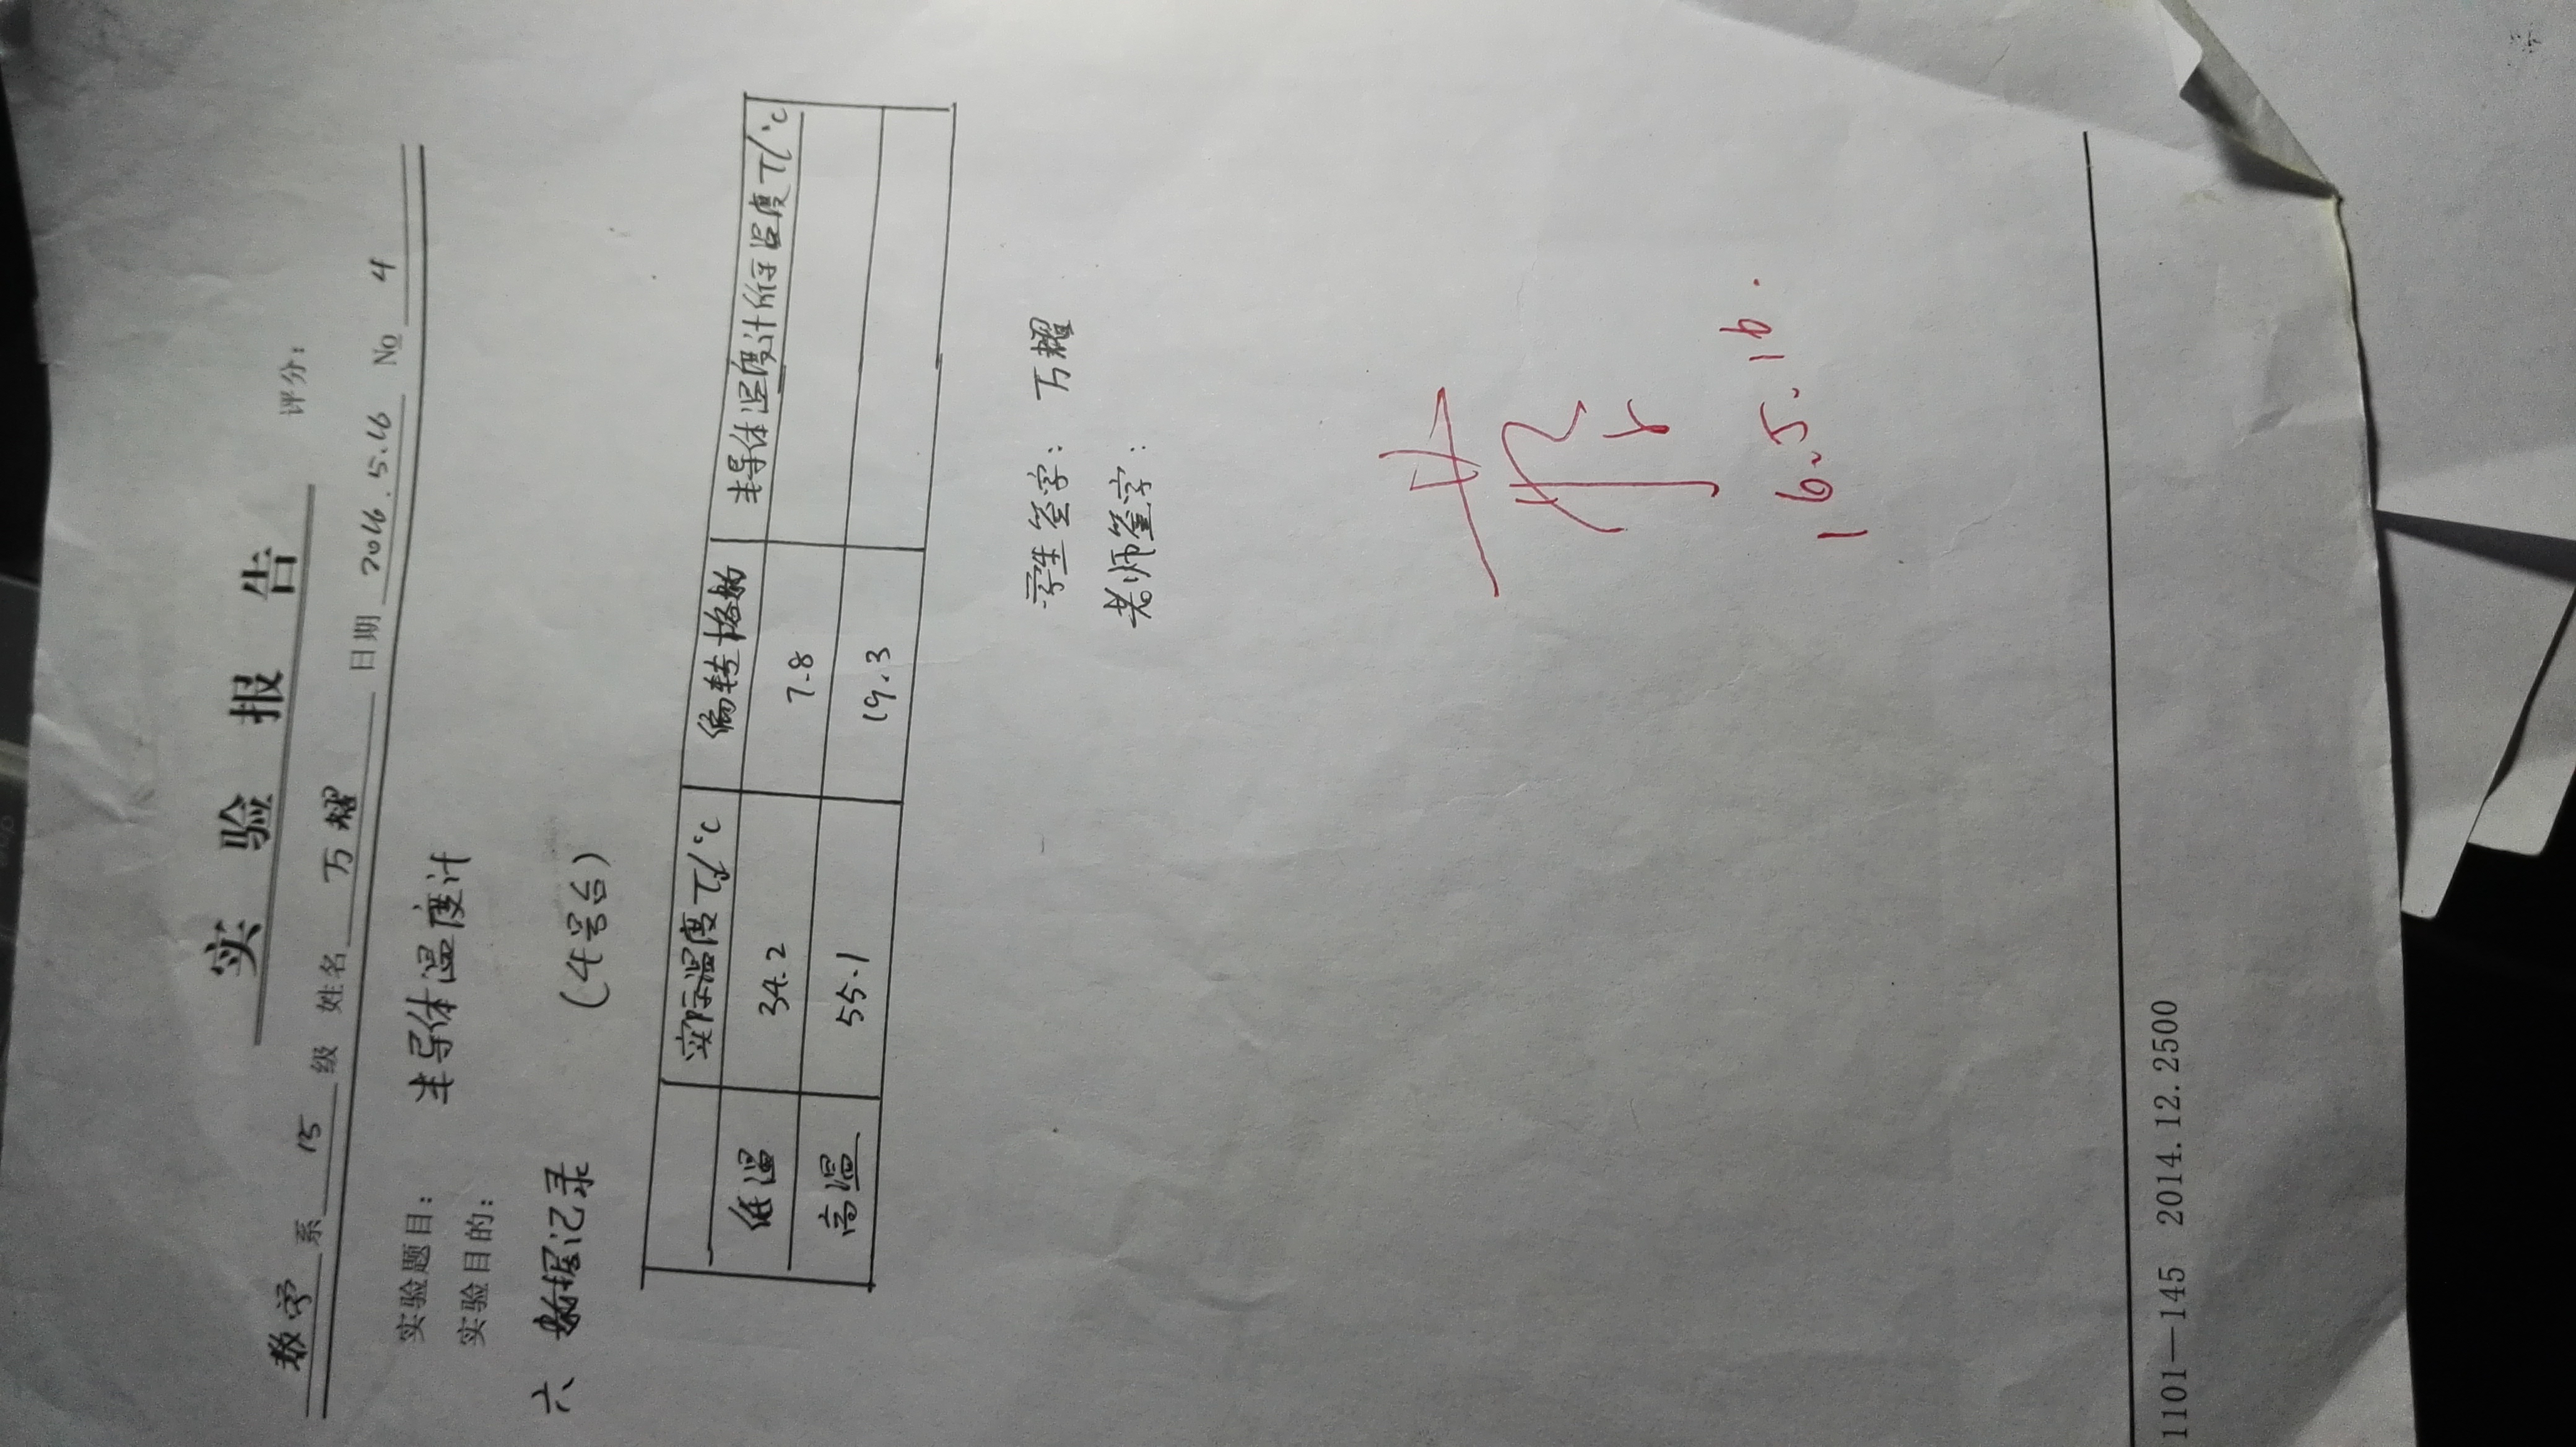 实验报告
评分：
数学 系 15 级 姓名 万耀 日期 2016.5.16 No 4
实验题目： 半导体温度计
实验目的：
六、数据记录 (4号台)
实际温度T/℃ 偏转格数 半导体温度计所示温度T/℃
低温 34.2 7.8
高温 55.1 19.3
学生签字： 万耀
老师签字：
16.5.16.
1101—145 2014.12.2500